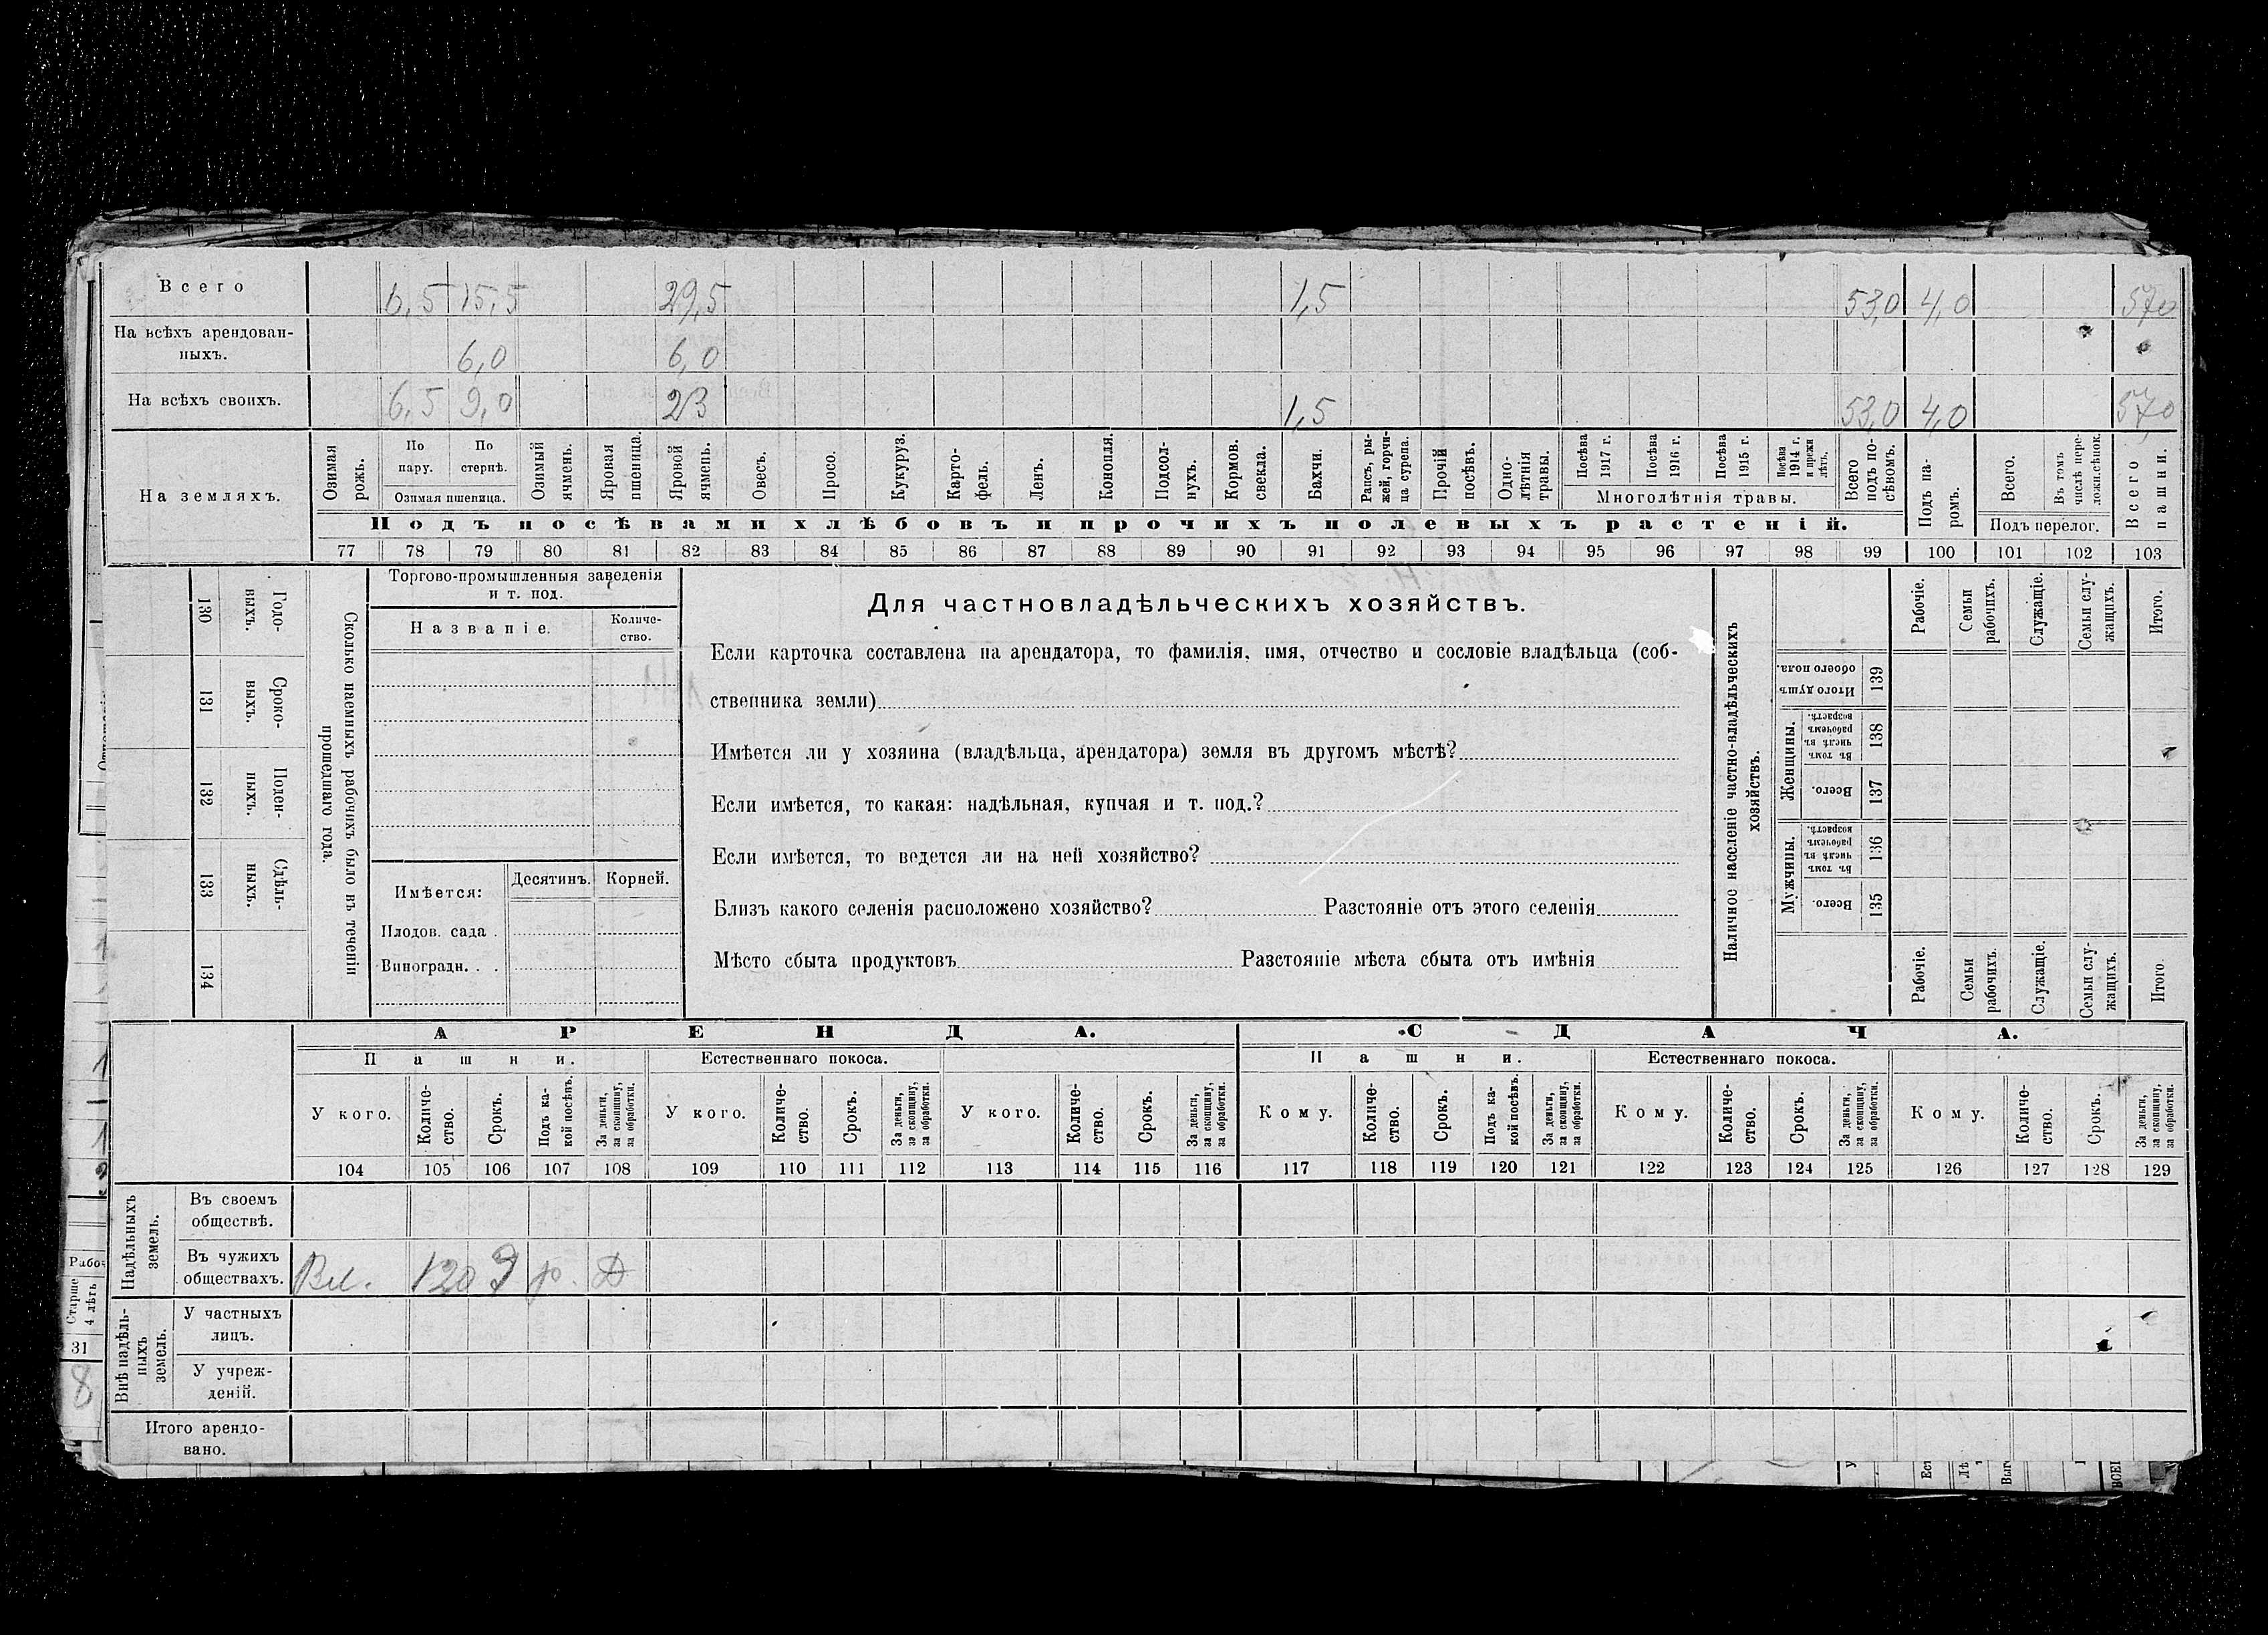 Всего 6,5 15,5 29,5 1,5 53,0 4,0 57,0
На всѣхъ арендован-
ныхъ. 6,0 6,0
На всѣхъ своихъ. 6,5 9,0 23 1,5 53,0 4,0 57,0
На земляхъ.
Озимая рожь.
По пару.
По стернѣ.
Озимая пшеница.
Озимый ячмень.
Яровая пшеница.
Яровой ячмень.
Овесъ.
Просо.
Кукуруз.
Карто-
фель.
Ленъ.
Конопля.
Подсол-
нухъ.
Кормов. свекла.
Бахчи.
Рапсъ, ры-
жей, горчи-
ца сурепа.
Прочій посѣвъ.
Одно-
лѣтнія травы.
Посѣва 1917 г.
Посѣва 1916 г.
Посѣва 1915 г.
Посѣва 1914 г. и прежн лѣтъ.
Многолѣтнія травы.
Всего подъ по-
сѣвомъ.
Подъ па-
ромъ.
Всего.
Въ томъ числѣ пере-
ложн.сѣнок.
Подъ перелог.
Всего пашни.
Подъ посѣвами хлѣбовъ и прочихъ полевыхъ растеній.
77 78 79 80 81 82 83 84 85 86 87 88 89 90 91 92 93 94 95 96 97 98 99 100 101 102 103
130 Годо-
выхъ.
131 Сроко-
выхъ.
132 Поден-
ныхъ.
133 Сдѣль-
ныхъ.
134
Сколько наемныхъ рабочихъ было въ теченіи
прошедшаго года.
Торгово-промышленныя заведенія
и т. под.
Названіе.
Количе-
ство.
Имѣется:
Десятинъ. Корней.
Плодов. сада .
Виноградн. . .
Для частновладѣльческихъ хозяйствъ.
Если карточка составлена на арендатора, то фамилія, имя, отчество и сословіе владѣльца (соб-
ственника земли)
Имѣется ли у хозяина (владѣльца, арендатора) земля въ другомъ мѣстѣ?
Если имѣется, то какая: надѣльная, купчая и т. под.?
Если имѣется, то ведется ли на ней хозяйство?
Близъ какого селенія расположено хозяйство? Разстояніе отъ этого селенія
Мѣсто сбыта продуктовъ Разстояніе мѣста сбыта отъ имѣнія
Наличное населеніе частно-владѣльческихъ
хозяйствъ.
Рабочіе.
Семьи рабочихъ.
Служащіе.
Семьи слу-
жащихъ.
Итого.
Итого душъ обоего пола. 139
Женщины.
Въ томъ числѣ въ рабочемъ возрастѣ. 138
Всего. 137
Мужчины.
Въ томъ числѣ въ рабочемъ возрастѣ. 136
Всего. 135
Рабочіе.
Семьи рабочихъ.
Служащіе.
Семьи слу-
жащихъ.
Итого
АРЕНДА. СДАЧА.
Пашни. Естественнаго покоса. Пашни. Естественнаго покоса.
У кого.
Количе-
ство.
Срокъ.
Подъ ка-
кой посѣвъ.
За деньги, за скопщину, за обработки.
У кого.
Количе-
ство.
Срокъ.
За деньги, за скопщину, за обработки.
У кого.
Количе-
ство.
Срокъ.
За деньги, за скопщину, за обработки.
Кому.
Количе-
ство.
Срокъ.
Подъ ка-
кой посѣвъ.
За деньги, за скопщину, за обработки.
Кому.
Количе-
ство.
Срокъ.
За деньги, за скопщину, за обработки.
Кому.
Количе-
ство.
Срокъ.
За деньги, за скопщину, за обработки.
104 105 106 107 108 109 110 111 112 113 114 115 116 117 118 119 120 121 122 123 124 125 126 127 128 129
Надѣльныхъ земель.
Въ своемъ
обществѣ.
Въ чужихъ
обществахъ. Вл.
Внѣ надѣль-
ныхъ земель.
У частныхъ
лицъ.
У учреж-
деній.
Итого арендо-
вано.
Рабоч
Старше
4 лѣтъ
31
8